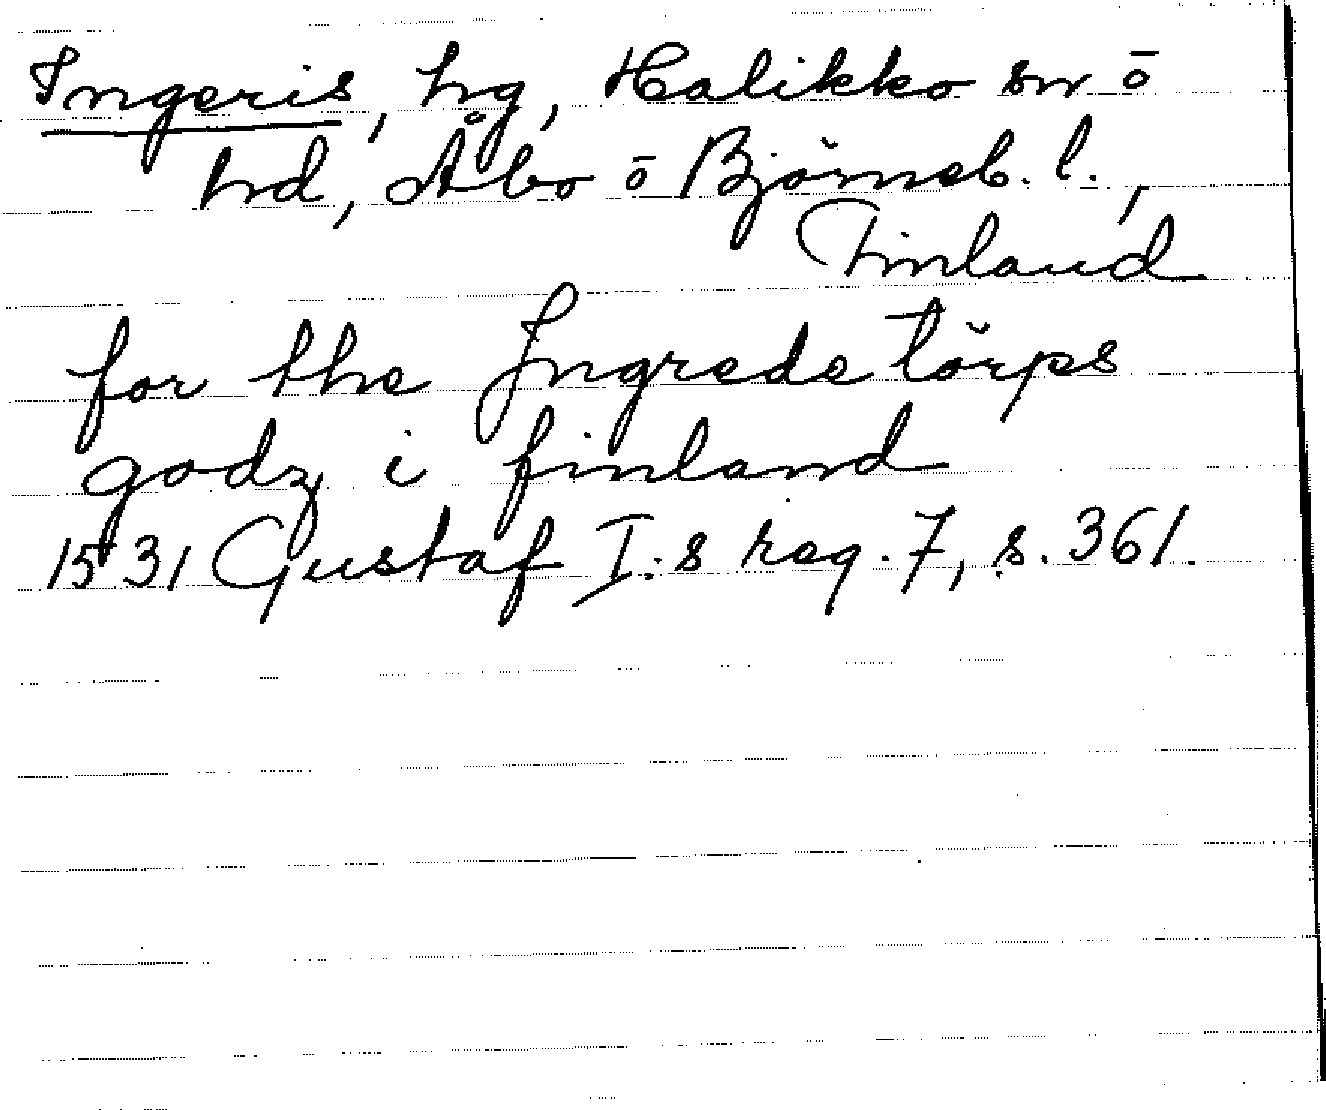 Ingeris, hg, Halikko sn ō
hd, Åbo ō Björneb. l.,
Finland
for the Jngrede törps
godz i finland
1531 Gustaf I:s reg. 7, s. 361.